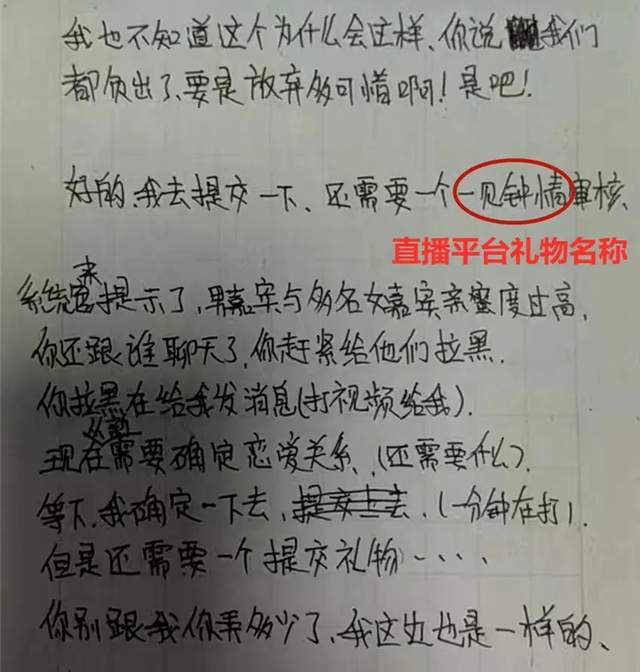 我也不知道这个为什么会这样、你说我们
都负出了、要是放弃多可惜啊！是吧！
好的、我去提交一下、还需要一个一见钟情审核、
直播平台礼物名称
来
系统提示了，男嘉宾与多名女嘉宾亲蜜度过高，
你还跟谁聊天了，你赶紧给他们拉黑．
你拉黑在给我发消息(打视频给我)．
现在需要确定恋爱关系、(还需要什么)．
等下、我确定一下去，提交上去、(一分钟在打)．
但是还需要一个提交礼物····
你别跟我你弄多少了、我这边也是一样的、